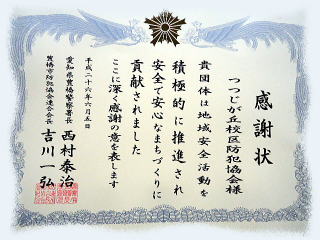 感謝状
つつじが丘校区防犯協会様
貴団体は地域安全活動を
積極的に推進され
安全で安心なまちづくりに
貢献されました
ここに深く感謝の意を表します
平成二十六年六月五日
愛知県豊橋警察署長
西村泰治
豊橋市防犯協会連合会長
吉川一弘